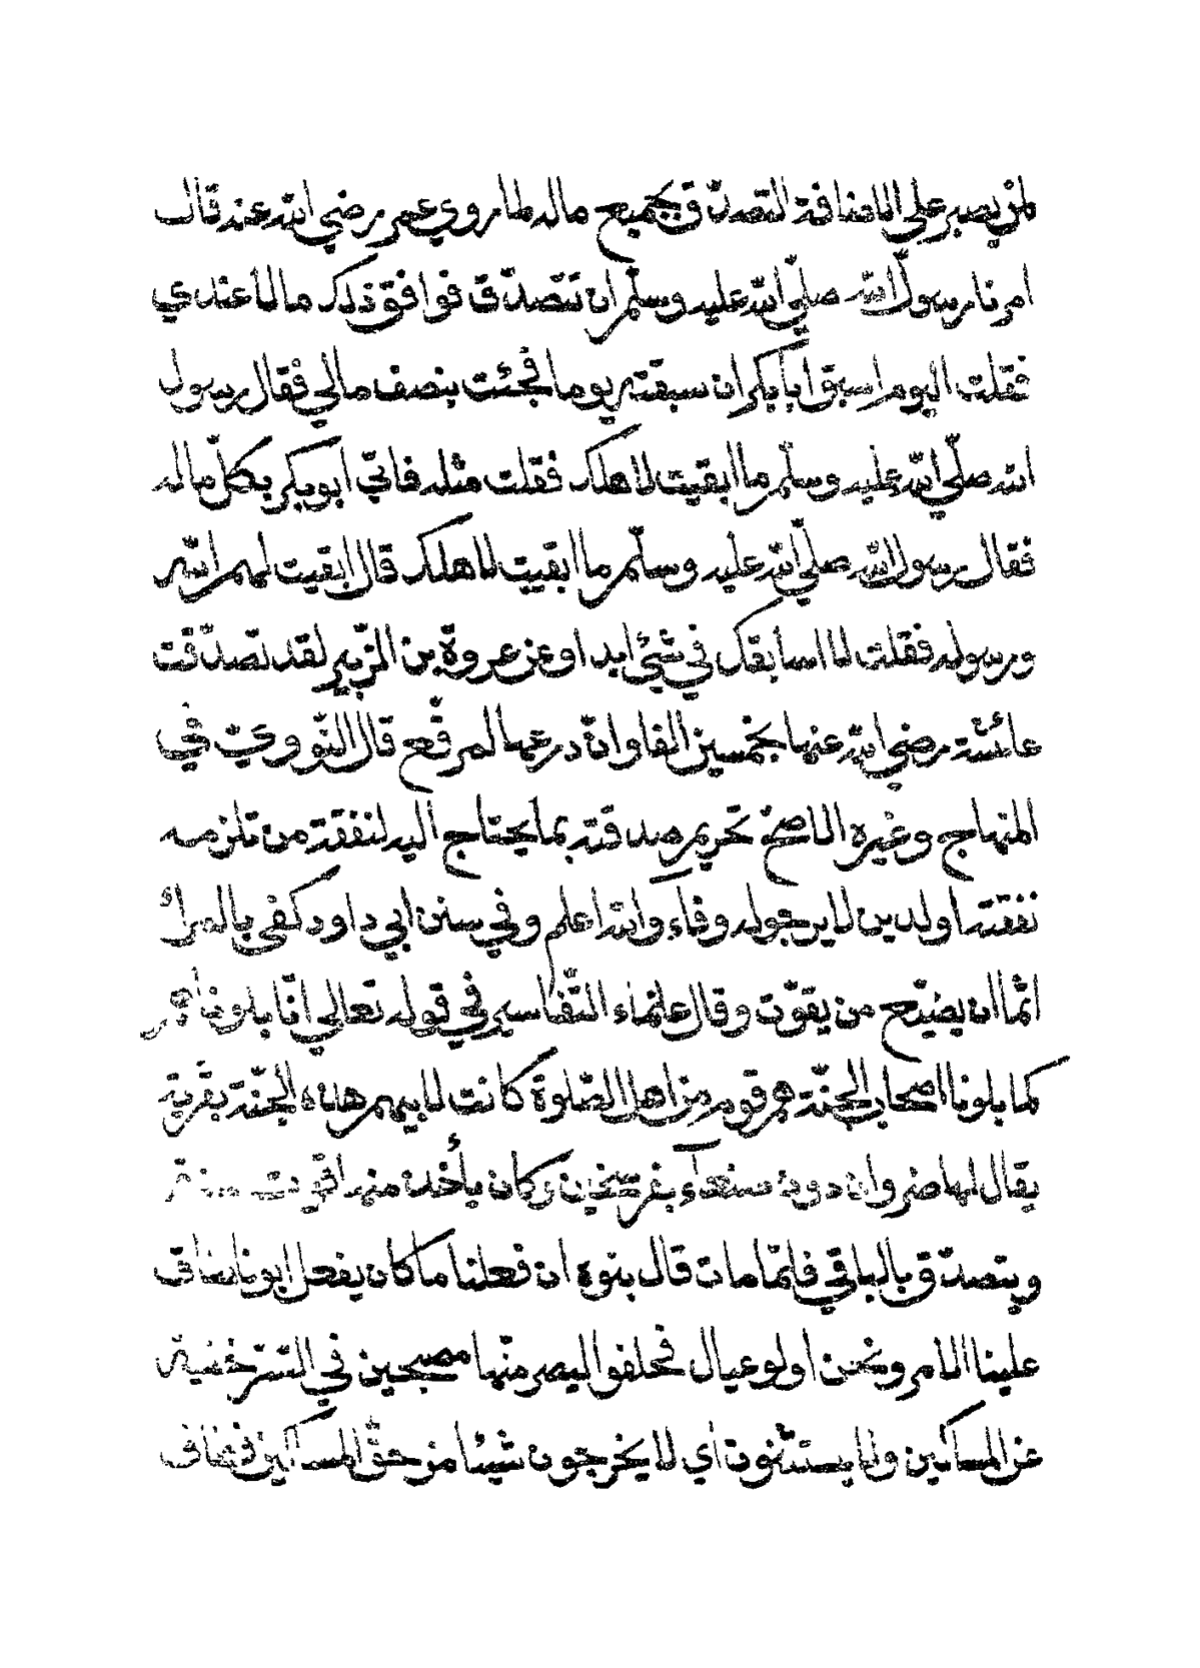 لمن يصبر علي الاضافة التصدّق بجميع ماله لما روي عمر رضي الله عنه قال
امرنا رسول الله صلّي الله عليه وسلّم ان نتصدّق فوافق ذلك مالا عندي
فقلت اليوم اسبق ابا بكر ان سبقته يوما فجئت بنصف مالي فقال رسول
الله صلّي الله عليه وسلّم ما ابقيت لاهلك فقلت مثله فاتي ابو بكر بكلّ ماله
فقال رسول الله صلّي الله عليه وسلّم ما ابقيت لاهلك قال ابقيت لهم الله
ورسوله فقلت لا اسابقك في شئ ابدا وعن عروة بن الزّبير لقد تصدّقت
عائشة رضي الله عنها بخمسين الفا وانّ درعها لمرقّع قال النّووي في
المنهاج وغيره الاصحّ تحريم صدقته بما يحتاج اليه لنفقة من تلزمه
نفقته او لدين لا يرجو له وفاء والله اعلم وفي سنن ابي داود كفى بالمرأ
اثما ان يضيّع من يقوّت وقال علماء التّفاسير في قوله تعالي انّا بلوناهم
كما بلونا اصحاب الجنّة هم قوم من اهل الصّلوة كانت لابيهم هذه الجنّة بقرية
يقال لها ضروان دون صنعآء بفرسخين وكان يأخذ منها قوت سنة
ويتصدّق بالباقي فلمّا مات قال بنوه ان فعلنا ما كان يفعل ابونا ضاق
علينا الامر ونحن اولو عيال فحلفوا ليصرمنّها مصبحين في السّرّ خفية
عن المساكين ولا يستثنون اي لا يخرجون شيئا من حقّ المساكين فطاف